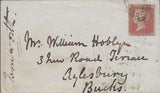 Mr. William Hoblyn
3 New Road Terrace
Aylesbury
Bucks.